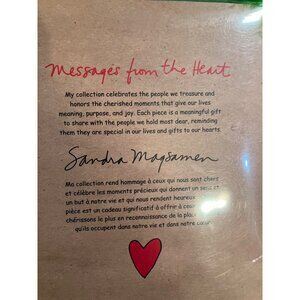 Messages from the Heart
My collection celebrates the people we treasure and
honors the cherished moments that give our lives
meaning, purpose, and joy. Each piece is a meaningful gift
to share with the people we hold most dear, reminding
them they are special in our lives and gifts to our hearts.
Sandra Magsamen
Ma collection rend hommage à ceux qui nous sont chers
et célèbre les moments précieux qui donnent un sens et
un but à notre vie et qui nous rendent heureux.
pièce est un cadeau significatif à offrir à ceux
chérissons le plus en reconnaissance de la place
qu'ils occupent dans notre vie et dans notre cœur.